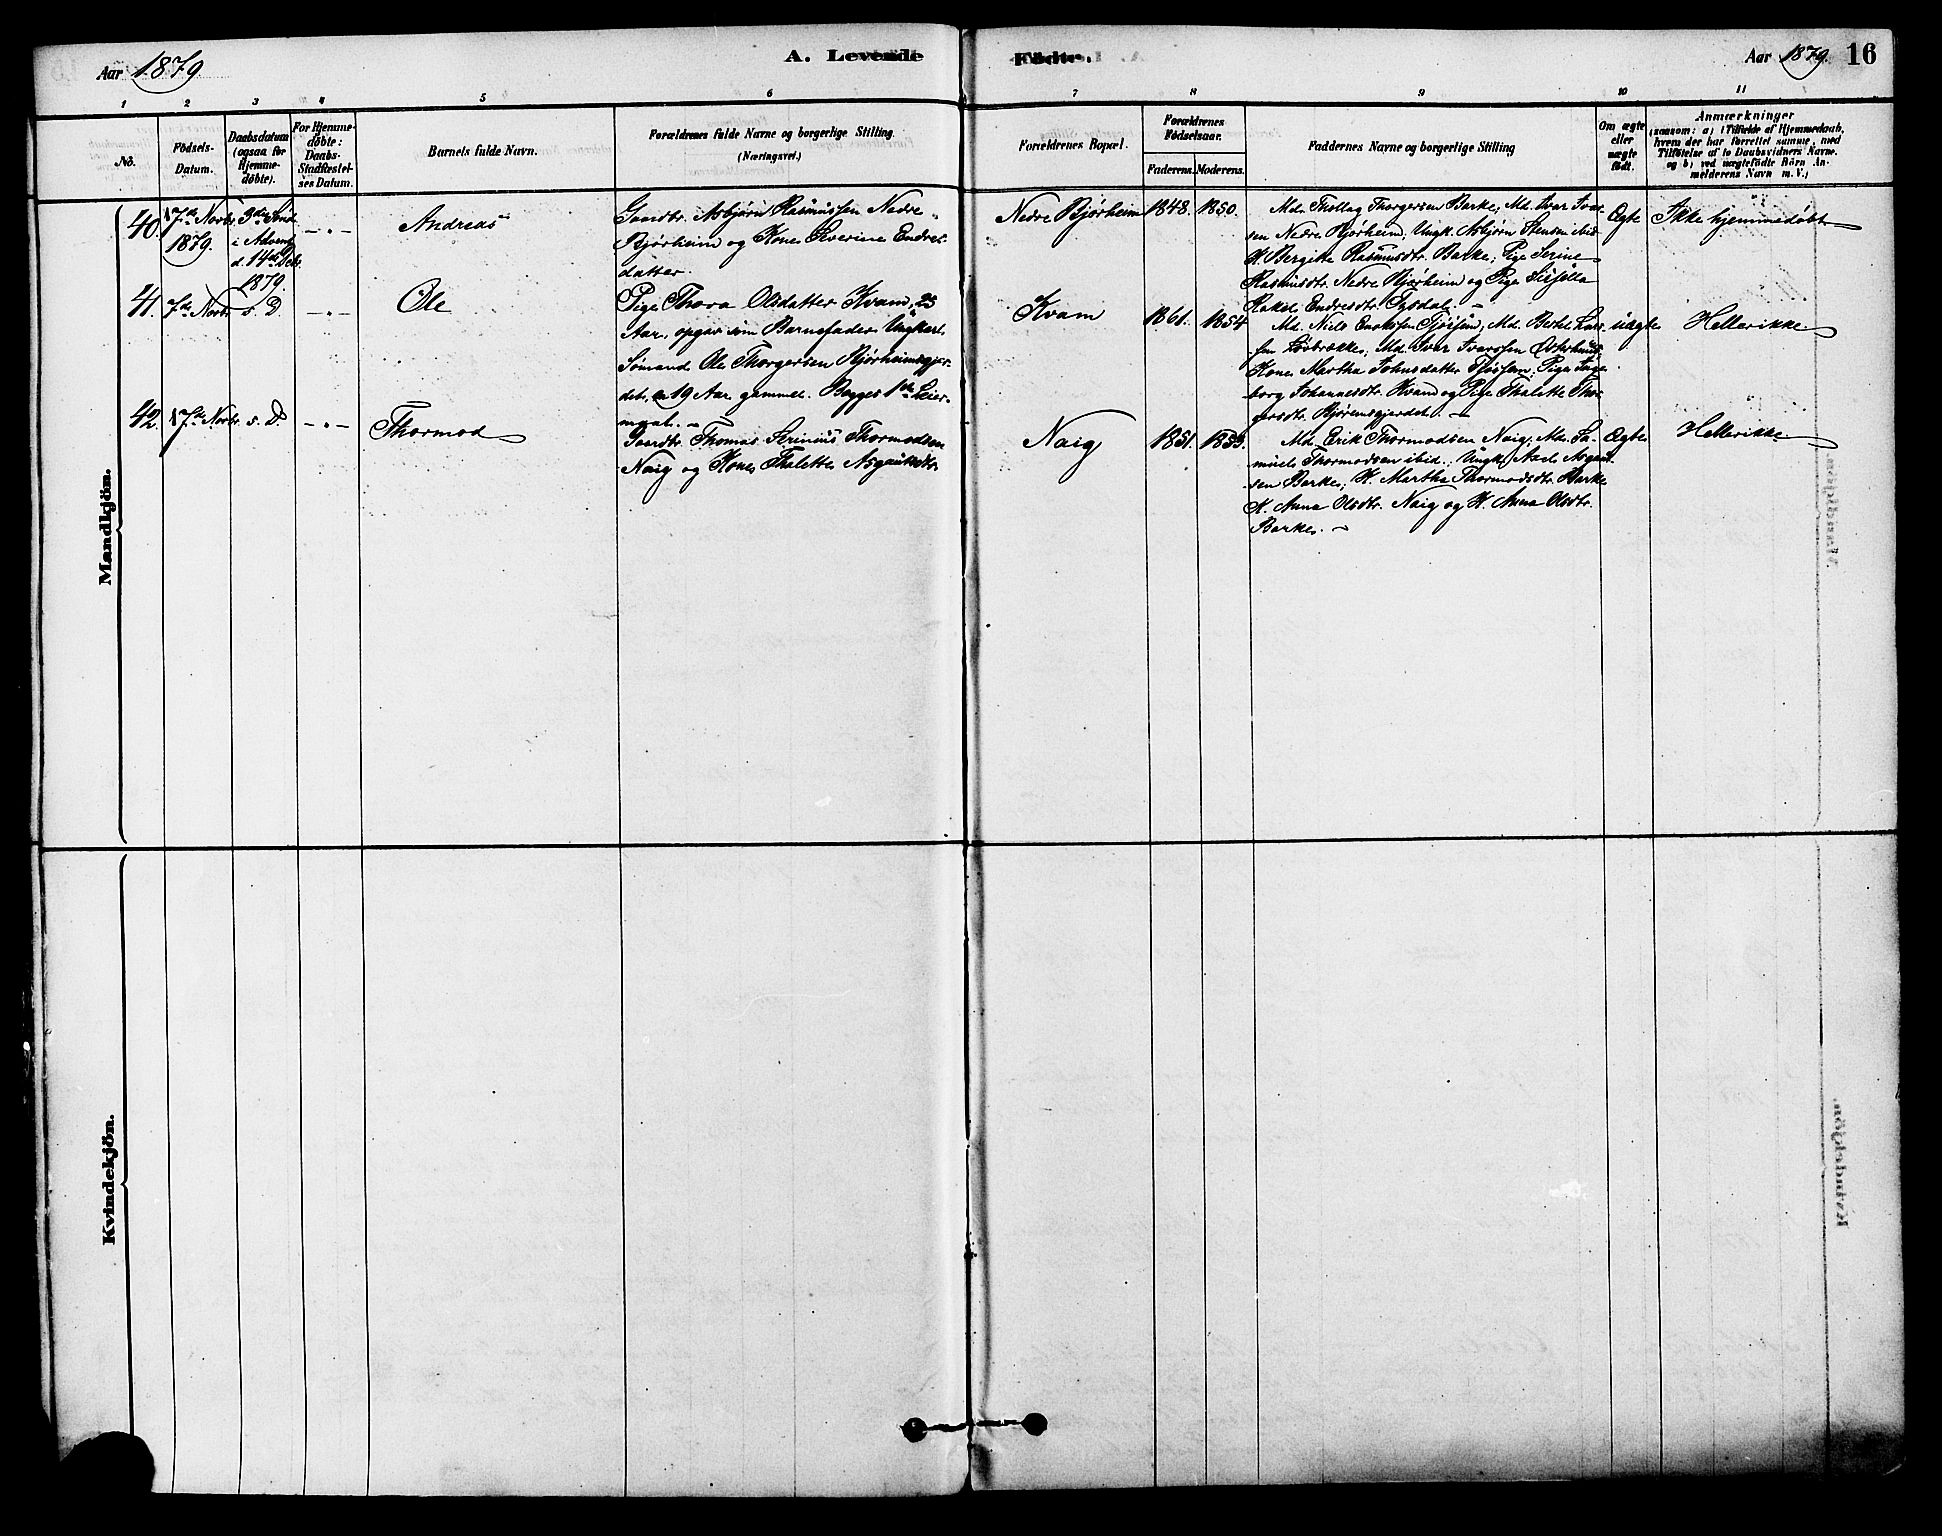 Aar 1879
A. Levende
Fødte.
Aar 1879.
16
1 2 3 4 5 6 7 8 9 10 11
No.
Fødsels-
Datum.
Daabsdatum
(ogsaa for
Hjemme-
døbte).
For Hjemme-
døbte:
Daabs-
Stadfæstel-
ses Datum.
Barnets fulde Navn.
Forældrenes fulde Navne og borgerlige Stilling.
(Næringsvei.)
Forældrenes Bopæl.
Forældrenes
Fødselsaar.
Faderens.
Moderens.
Faddernes Navne og borgerlige Stilling
Om ægte
eller
uægte
født.
Anmærkninger
(saasom: a) i Tilfælde af Hjemmedaab,
hvem der har forrettet samme, med
Tilføielse af to Daabsvidners Navne.
og b) ved uægtefødte Børn An-
melderens Navn m. V.)
Mandkjön.
40.
17de Novbr.
1879.
3die Sønd.
i Advent
d. 14de Debr.
1879.
— " —
Andreas
Gaardbr. Asbjørn Rasmussen Nedre
Bjørheim og Kone Severine Endres-
datter.
Nedre Bjørheim
1848.
1850.
Md. Thollag Thorgersen Barke; Md. Ivar Ivar-
sen Nedre Bjørheim; Ungk. Asbjørn Stensen ibid
K. Bergite Rasmusdtr. Barke; Pige Serine
Rasmusdtr. Nedre Bjørheim og Pige
Rakel Endresdtr. Tysdal. —
Ægte
Ikke hjemmedøbt
41.
7de Novbr.
s. D.
— " —
Ole
Pige Thora Olsdatter Kvam, 25
Aar, opgav som Barnefader Ungkarl
Sømand Ole Thorgersen Bjørheimsgjer-
det, 19 Aar gammel. Begges 1ste Leier-
maal. —
Kvam
1861.
1854
Md. Niels Enoksen Tjøssem; Md. Berthel Lar-
sen; Md. Ivar Ivarssen Østerhuus;
Kone Martha Johnsdatter Tjøssem; Pige Inge-
borg Johannesdtr. Kvam og Pige Thalette Thor-
gersdtr. Bjøremsgjerdet. —
uægte
Hellerikke
42.
17de Novbr.
s. D.
— " —
Thormod
Gaardbr. Thomas Serinius Thormodsen
Naig og Kone Thalette Asgautsdtr.
Naig
1851.
1853.
Md. Erik Thormodsen Naig; Md. Sa-
muel Thormodsen ibid.; Ungk. Axel Asgaut-
sen Barke; K. Martha Thormodsdtr. Barke
K. Anna Olsdtr. Naig og K. Anna Olsdtr.
Barke. —
Ægte
Hellerikke
Kvindekjön.